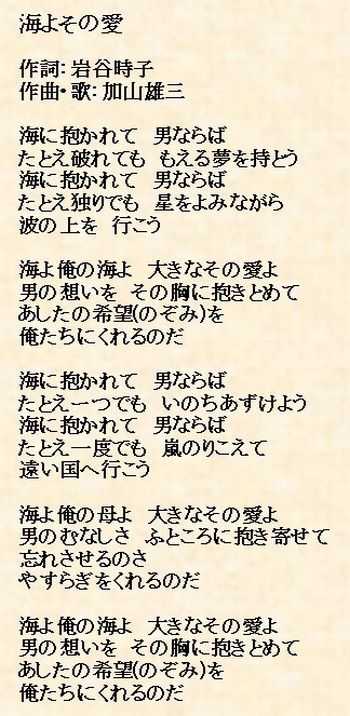 海よその愛
作詞：岩谷時子
作曲・歌：加山雄三
海に抱かれて　男ならば
たとえ破れても　もえる夢を持とう
海に抱かれて　男ならば
たとえ独りでも　星をよみながら
波の上を　行こう
海よ俺の海よ　大きなその愛よ
男の想いを　その胸に抱きとめて
あしたの希望(のぞみ)を
俺たちにくれるのだ
海に抱かれて　男ならば
たとえ一つでも　いのちあずけよう
海に抱かれて　男ならば
たとえ一度でも　嵐のりこえて
遠い国へ行こう
海よ俺の母よ　大きなその愛よ
男のむなしさ　ふところに抱き寄せて
忘れさせるのさ
やすらぎをくれるのだ
海よ俺の海よ　大きなその愛よ
男の想いを　その胸に抱きとめて
あしたの希望(のぞみ)を
俺たちにくれるのだ